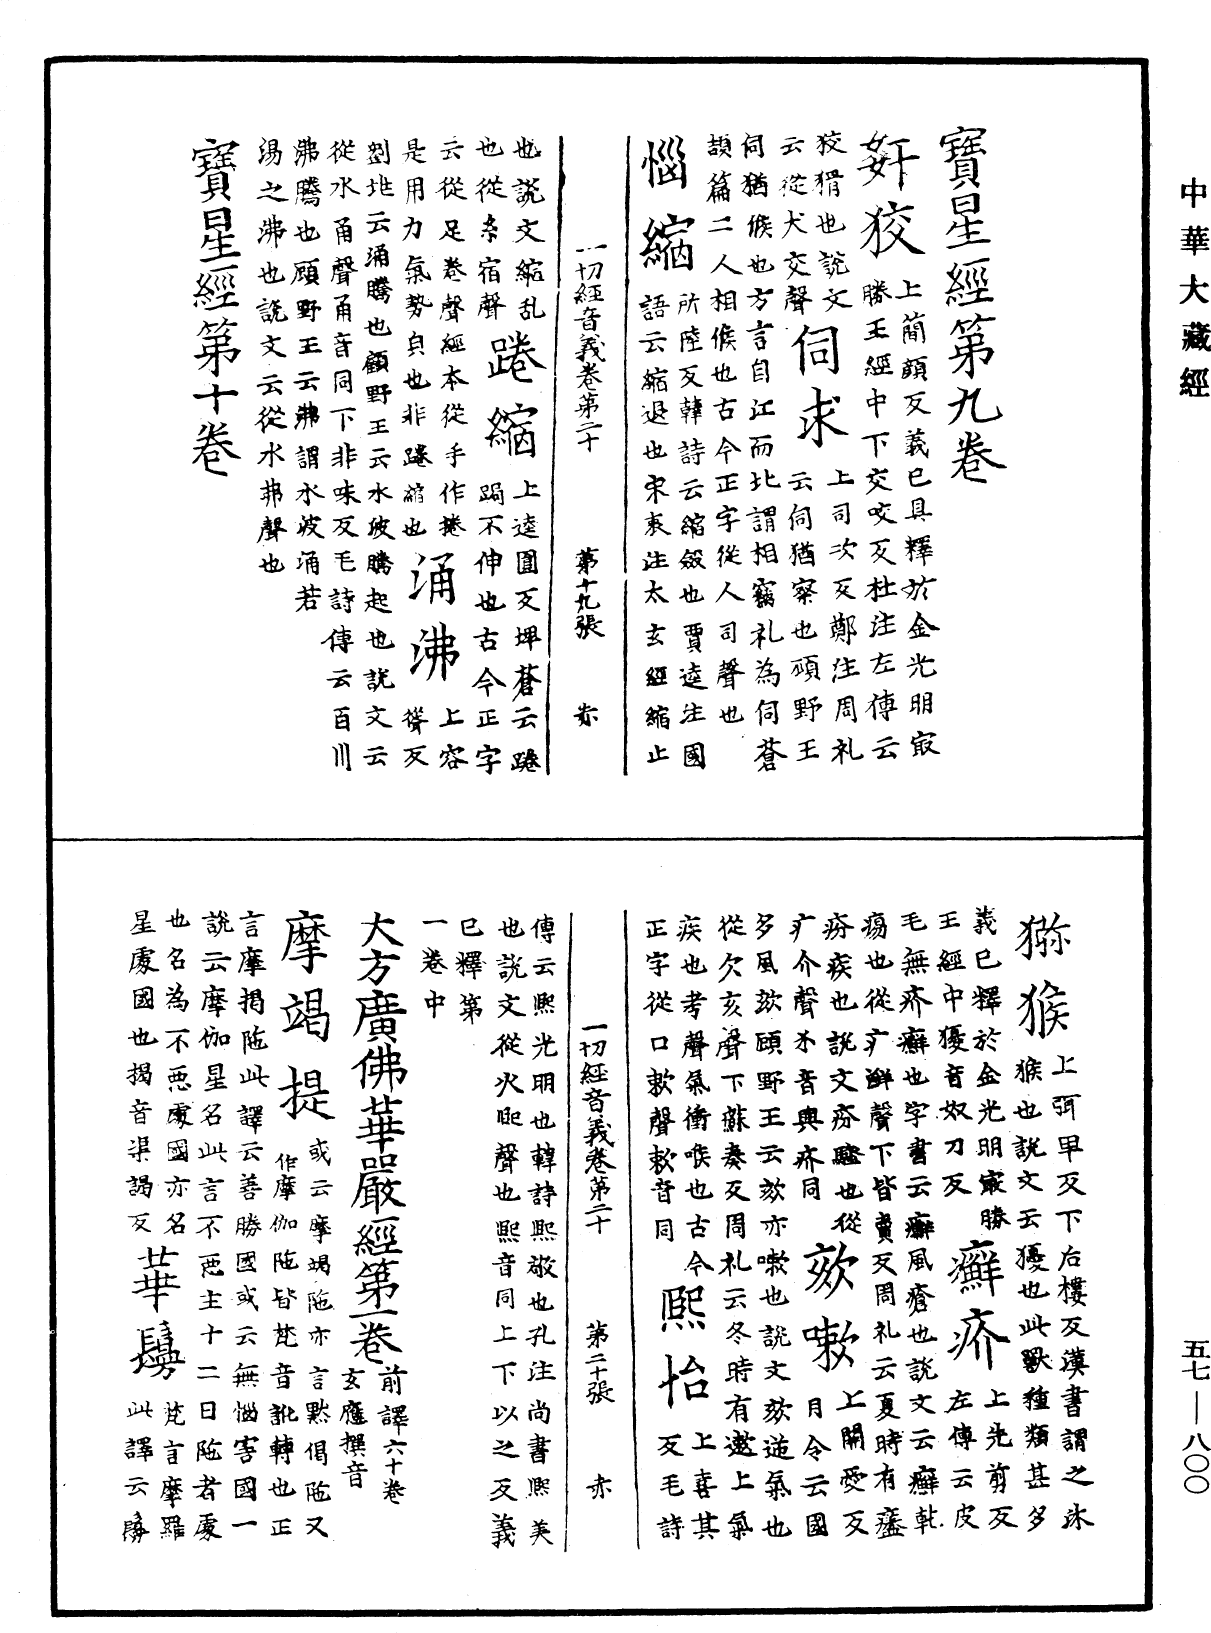 中華大藏經
寶星經第九卷
姧狡 上簡顔反義已具釋於金光明㝡
勝王經中下交咬反杜注左傳云
狡猾也說文
云從犬交聲
伺求 上司次反鄭注周礼
云伺猶察也顧野王
伺猶候也方言自江而北謂相竊礼為伺蒼
頡篇二人相候也古今正字從人司聲也
惱縮 所陸反韓詩云縮斂也賈逵注國
語云縮退也宋衷注太玄經縮止
一切經音義卷第二十 第十九張 赤
也說文縮乱
也從糸宿聲
踡縮 上逵圓反埤蒼云踡
跼不伸也古今正字
云從足卷聲經本從手作捲
是用力氣勢皃也非踡縮也
涌沸 上容
聳反
劉兆云涌騰也顧野王云水波騰起也說文云
從水甬聲甬音同下非味反毛詩傳云百川
沸騰也顧野王云沸謂水波涌若
湯之沸也說文云從水弗聲也
寶星經第十卷
獼猴 上弭卑反下后樓反漢書謂之沐
猴也說文云獶也此獸種類甚多
義已釋於金光明㝡勝
王經中獶音奴刀反
癬疥 上先剪反
左傳云皮
毛無疥癬也字書云癬風瘡也說文云癬乾
瘍也從疒鮮聲下皆賣反周礼云夏時有
疥疾也說文疥騷也從
疒介聲音與疥同
欬嗽 上開愛反
月令云國
多風欬顧野王云欬亦嗽也說文欬逆氣也
從欠亥聲下蘇奏反周礼云冬時有遬上氣
疾也考聲氣衝喉也古今
正字從口欶聲欶音同
熙怡 上喜其
反毛詩
一切經音義卷第二十 第二十張 赤
傳云熙光明也韓詩熙敬也孔注尚書熙美
也說文從火巸聲也熙音同上下以之反義
已釋第
一卷中
大方廣佛華嚴經第一卷 前譯六十卷
玄應撰音
摩竭提 或云摩竭陁亦言默偈陁又
作摩伽陁皆梵音訛轉也正
言摩揭陁此譯云善勝國或云無惱害國一
說云摩伽星名此言不惡主十二日陁者處
也名為不惡處國亦名
星處國也揭音渠謁反
華鬘 梵言摩羅
此譯云鬘
五七—八〇〇